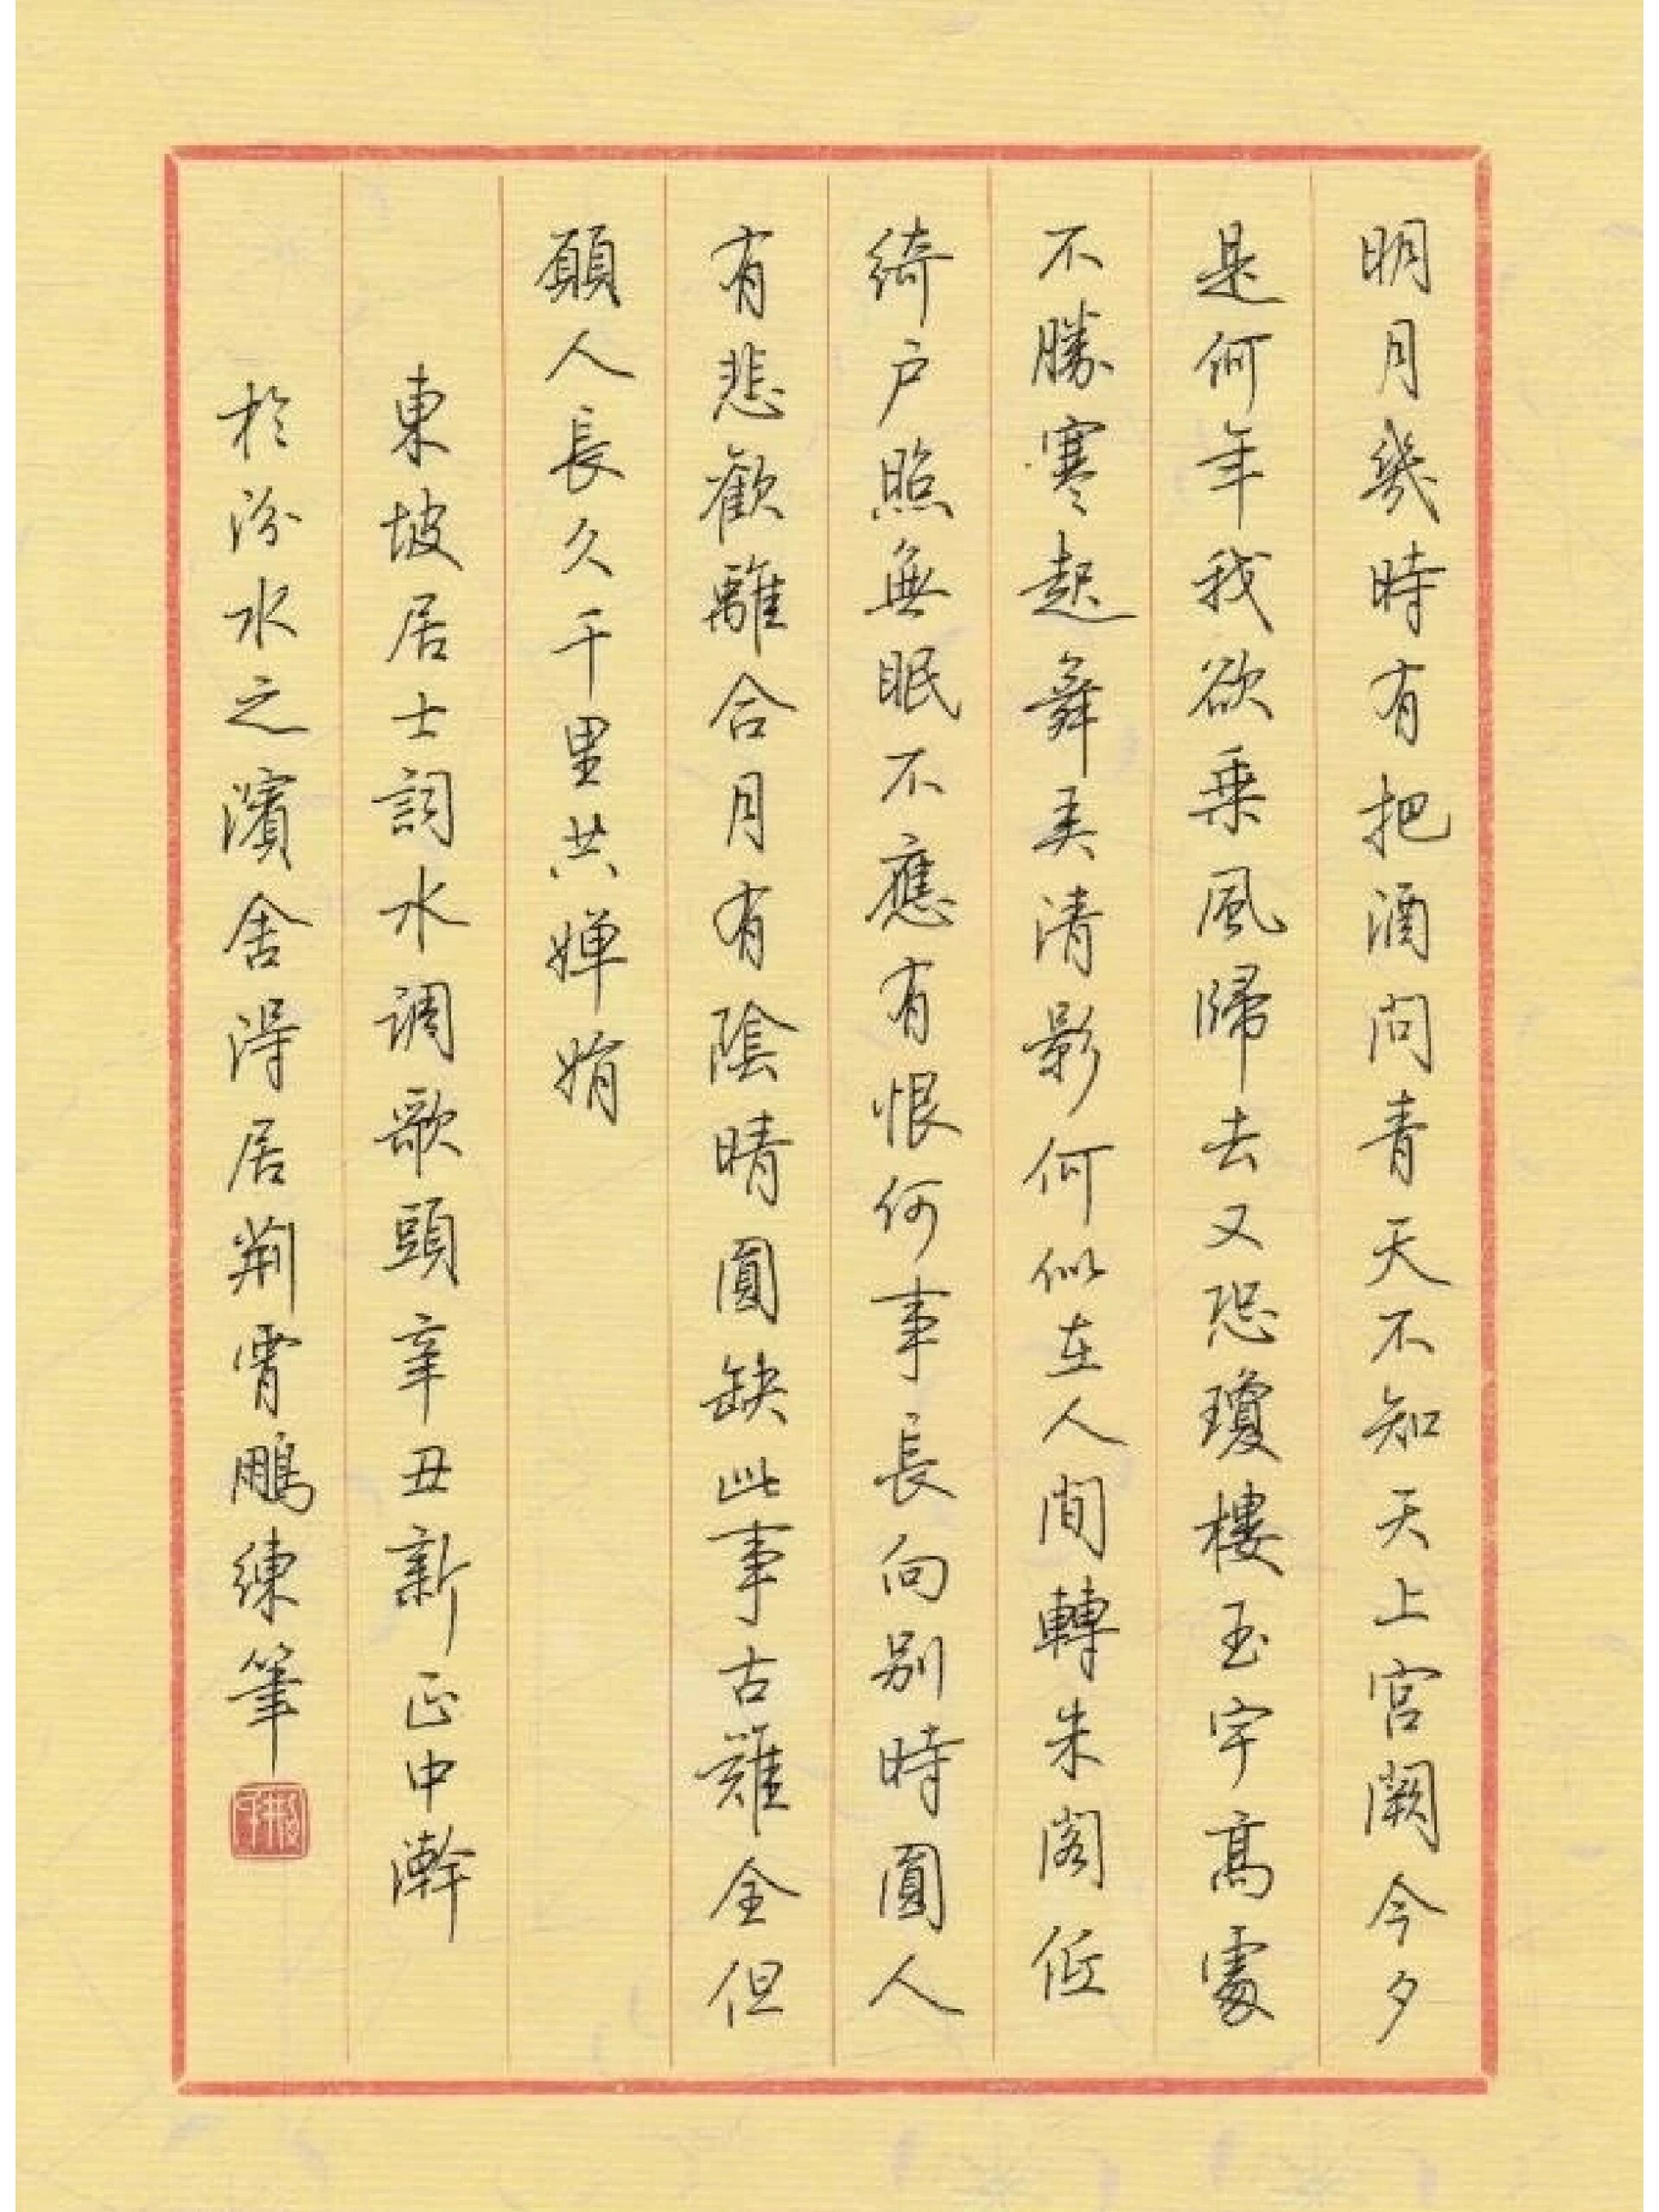 明月幾時有把酒問青天不知天上宮闕今夕
是何年我欲乗風歸去又恐瓊樓玉宇髙處
不勝寒起舞弄清影何似在人間轉朱閣低
綺户照無眠不應有恨何事長向别時圓人
有悲歡離合月有陰晴圓缺此事古難全但
願人長久千里共嬋娟
東坡居士詞水調歌頭辛丑新正中澣
於汾水之濱舍得居荊霄鵬練筆